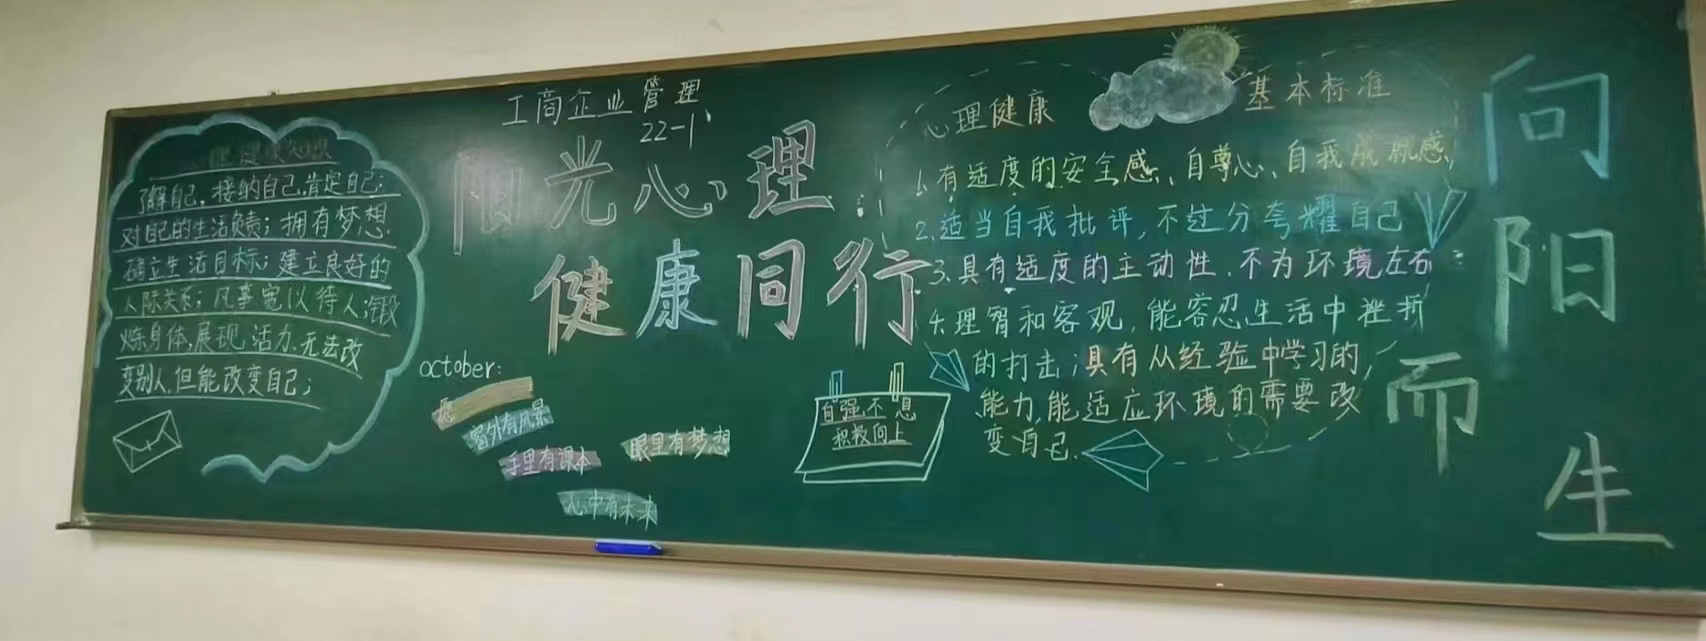 了解自己,接纳自己,肯定自己;
对自己的生活负责;拥有梦想,
确立生活目标;建立良好的
人际关系;凡事宽以待人;锻
炼身体,展现活力,无法改
变别人,但能改变自己;
工商企业管理
22-1
阳光心理
健康同行
october:
窗外有风景
手里有课本
眼里有梦想
心中有未来
自强不息
积极向上
心理健康 基本标准
1.有适度的安全感、自尊心、自我成就感
2.适当自我批评,不过分夸耀自己
3.具有适度的主动性,不为环境左右
4.理智和客观,能容忍生活中挫折
的打击;具有从经验中学习的
能力,能适应环境的需要改
变自己.
向
阳
而
生